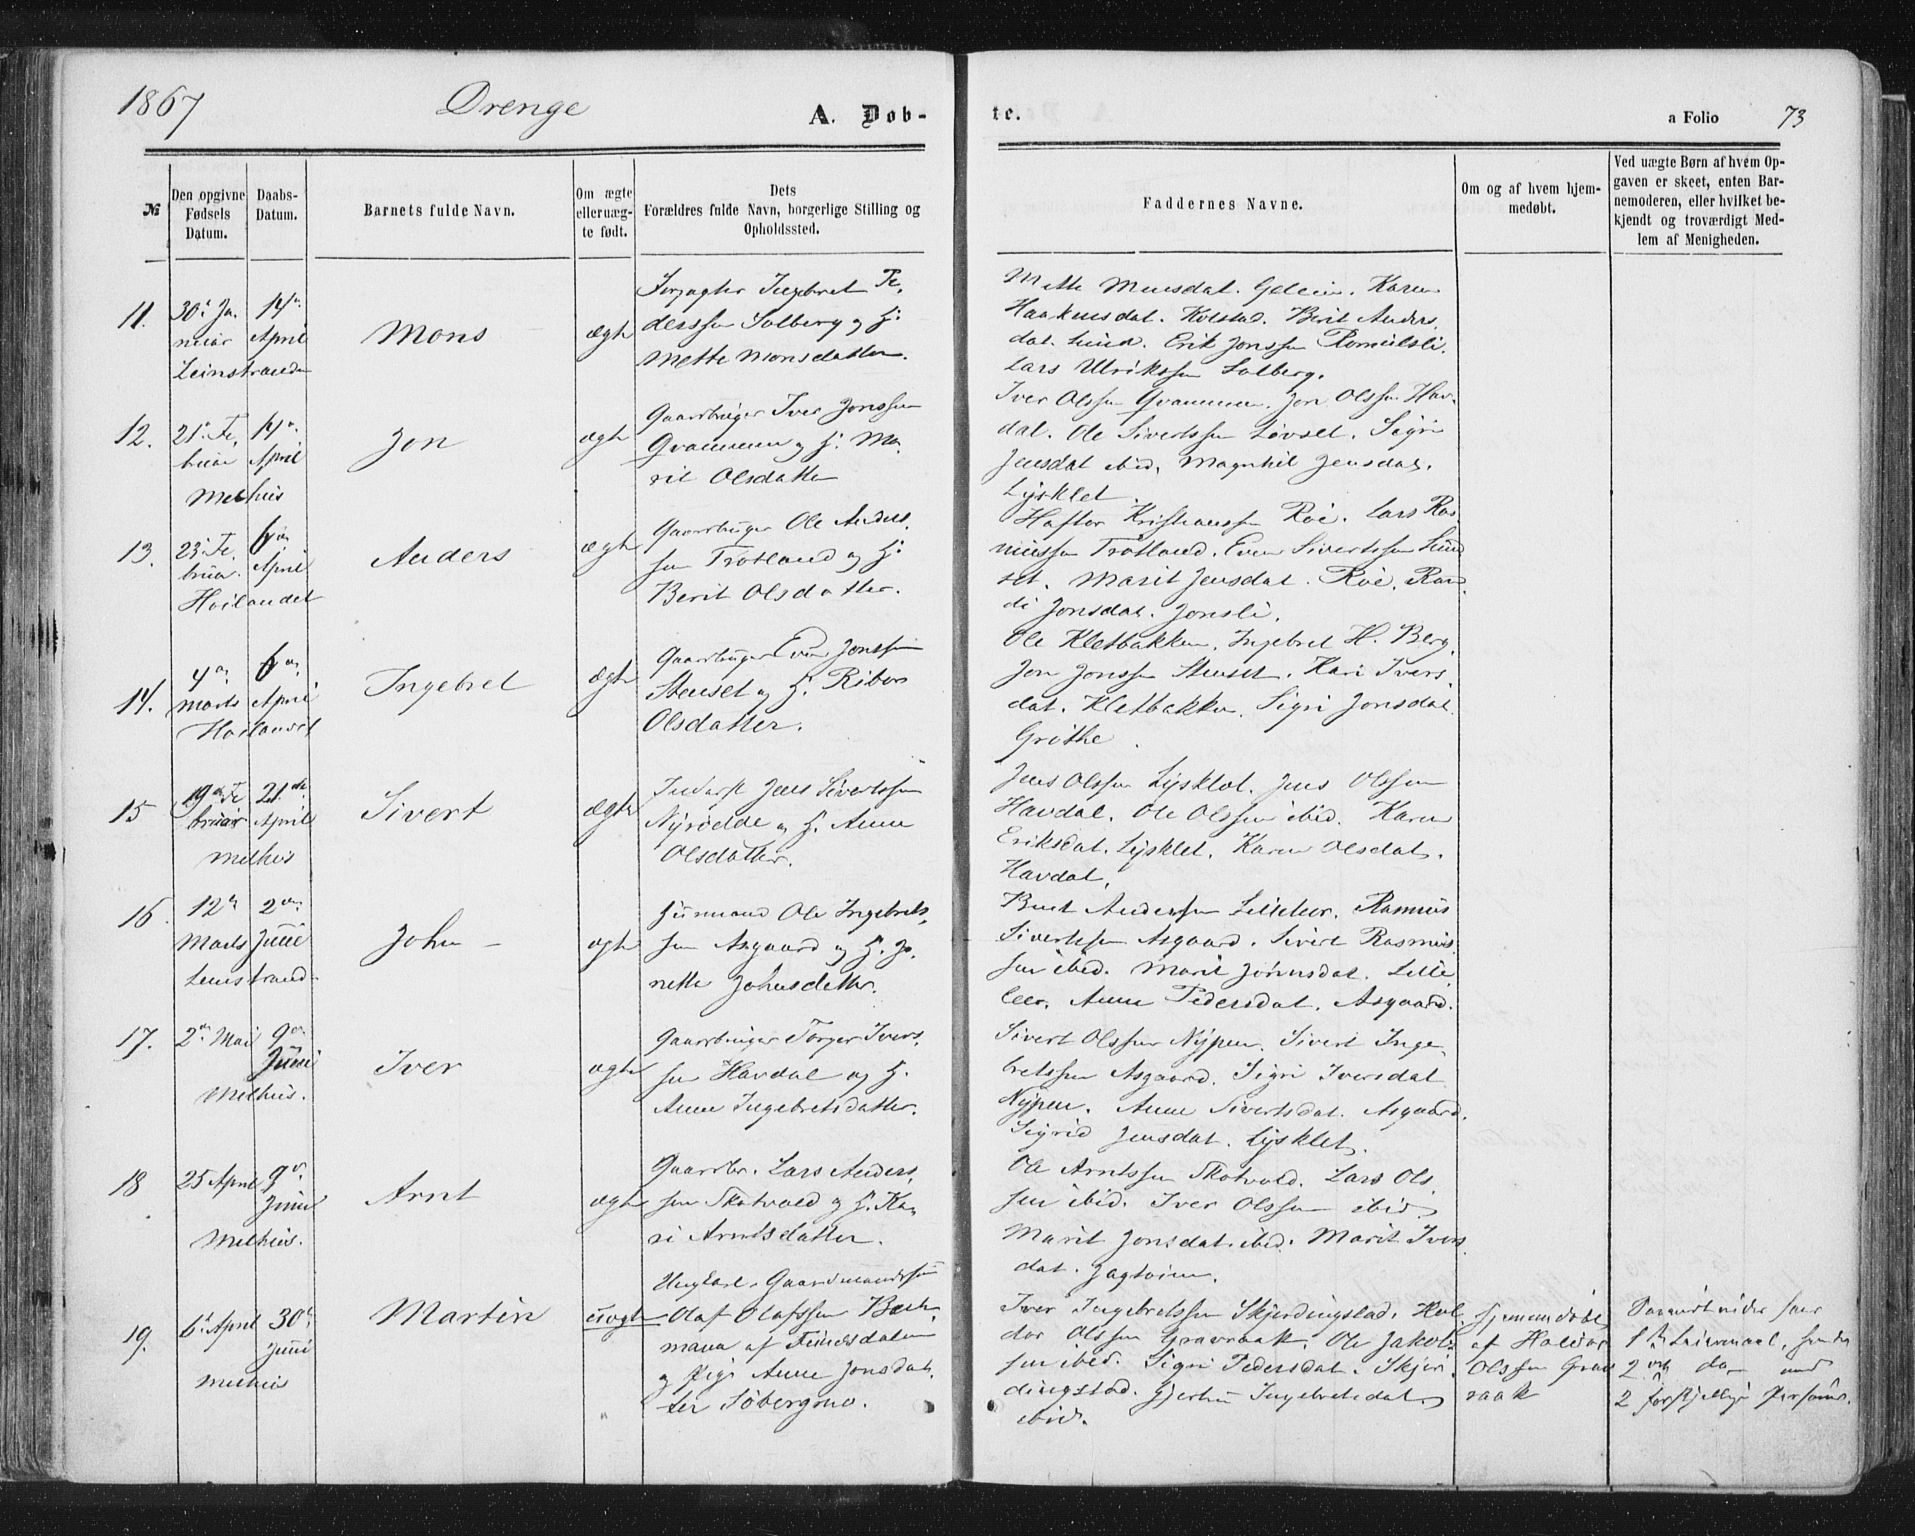 1867 Drenge A. Dob-
te. a Folio 73
№
Den opgivne Fødsels Datum.
Daabs-Datum.
Barnets fulde Navn.
Om ægte eller uæg-te født.
Dets
Forældres fulde Navn, borgerlige Stilling og Opholdssted.
Faddernes Navne.
Om og af hvem hjem-medøbt.
Ved uægte Børn af hvem Op-gaven er skeet, enten Bar-nemoderen, eller hvilket be-kjendt og troværdigt Med-lem af Menigheden.
11.
30' Ja-
nuar
Leinstranden
14'
April
Mons
ægte
Ingebret Pe-
derssen Solberg og H:
Mette Monsdatter.
Mette Karen
Haakensdat. Kolstad. Berit Anders
dat. Erik Jonssen Romulsli.
Lars Ulrikssen Solberg.
12.
21' Fe-
bruar
Melhus
14'
April
Jon
ægte
Gaardbruger Iver Jonssen
Qvammen og H: Ma-
rit Olsdatter
Iver Olssen Qvammen. Jon Olssen Hav-
dal. Ole Sivertssen Løvset. Sigri
Jensdat ibid. Magnhil Jensdat.
Lysklet.
13.
23' Fe-
bruar.
Hoilandet
April
Anders
ægte
Gaardbruger Ole Anders-
sen Trotland og H:
Berit Olsdatter.
Haftor Kristianssen Roe. Lars Ras-
mussen Trotland. Even Sivertssen Lund
set. Marit Jensdat. Roe. Ran
di Jonsdat. Jonsli.
14.
4'
Marts
Hoilandet
April
Ingebret
ægte
Gaardbruger Even Jonssen
Stenset og H. Ribor
Olsdatter.
Ole Kletbakken. Ingebret H. Berg.
Jon Jonssen Stenset. Kari Ivers
dat. Kletbakken. Sigri Jonsdat.
Grøthe.
15
19de Fe
bruar
Melhus
21de
April
Sivert
ægte
Inderst Jens Sivertssen
Nyrødde og H. Anne
Olsdatter.
Jens Olssen Lysklet. Jens Olssen
Havdal. Ole Olssen ibid. Karen
Eriksdat. Lysklet. Karen Olsdat.
Havdal.
16.
12'
Marts
Leinstrand
2'
Juni
John -
ægte
Husmand Ole Ingebrets-
sen Asgaard og H. Jo-
nette Johnsdatter.
Anderssen Rasmus
Sivertssen Asgaard. Sivert Rasmus
sen ibid. Marit Jørnsdat. Lille
leer. Anne Pedersdat. Asgaard.
17.
2' Mai
Melhus.
9'
Juni
Iver
ægte
Gaardbruger Torger Ivers-
sen Havdal og H.
Anne Ingebretsdatter.
Sivert Olssen Nypen. Sivert Inge-
bretssen Asgaard. Sigri Iversdat
Nypen. Anne Sivertsdat. Asgaard.
Sigrid Jensdat. Lysklet.
18
25 April
Melhus.
9'
Juni
Arnt
ægte
Gaardbr. Lars Anders-
sen Skotvold og H. Ka-
ri Arntsdatter.
Ole Arntssen Skotvold. Lars Ols
sen ibid. Iver Olssen ibid.
Marit Jonsdat. ibid. Marit Ivers
dat. Jagtoien.
19.
6' April
Melhus
30'
Juni
Martin
uægte
Ungkarl. Gaardmandssøn
Olaf Olafssen
af
og Pige Anne Jonsdat-
ter Søbergmo.
Iver Ingebretssen Skjerdingstad. Hal-
dor Olssen Gravraak. Ole Jakobs
sen ibid. Sigri Pedersdat. Skjer
dingstad. Gjertru Ingebretsdat.
ibid.
Hjemmedøbt
af Haldor
Olssen Grav
raak
1ste Leiermaal, hendes
2det do med
2 forskjellige Personer.